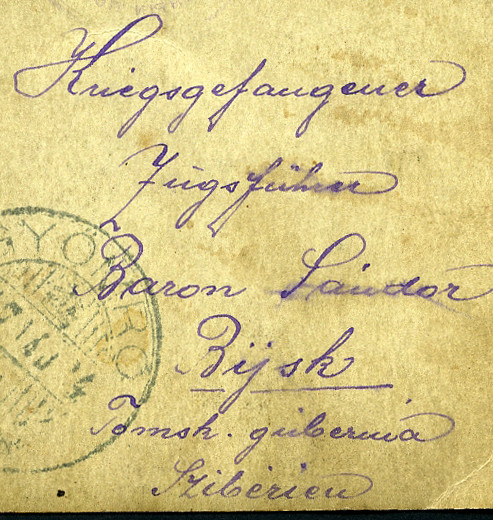 Kriegsgefangener
Zugsführer
Baron Sándor
Bijsk
Tomsk. gubernia
Szibérien
GYÖMRŐ